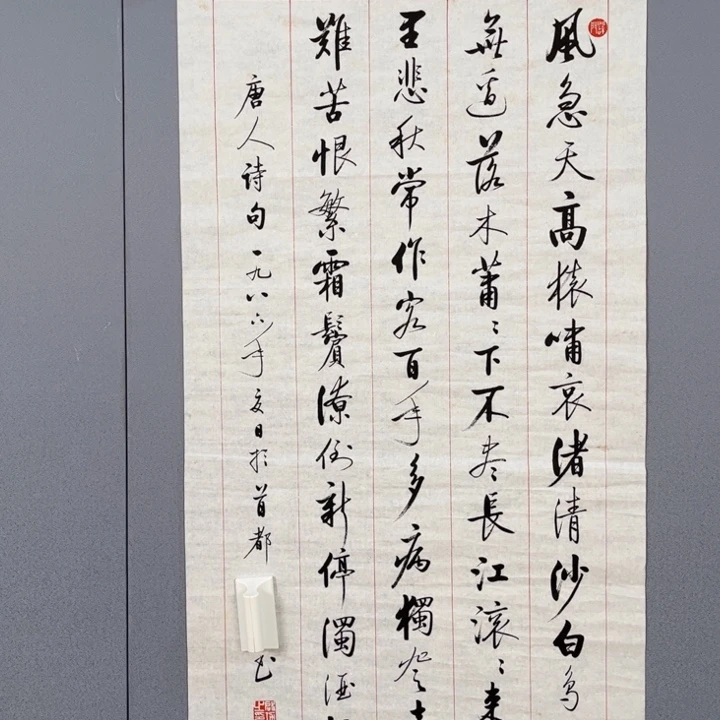 風急天高猿嘯哀渚清沙白鸟
無邊落木蕭〻下不盡長江滾〻来
里悲秋常作客百年多病獨登
難苦恨繁霜鬢潦倒新停濁酒
唐人诗句一九八六年夏日於首都
书